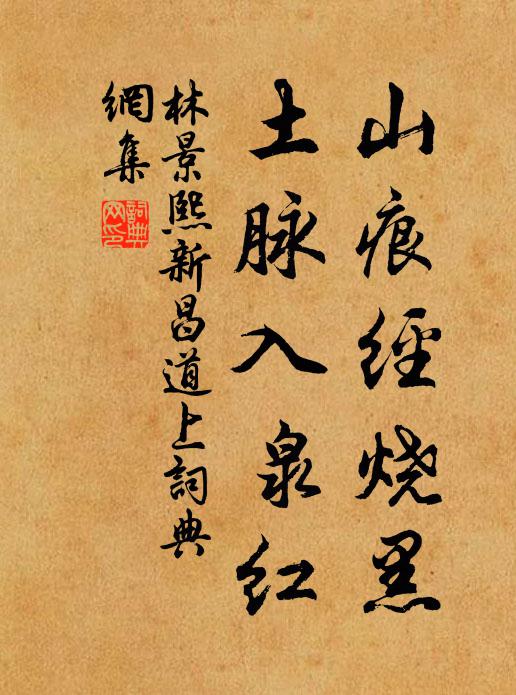 山痕經烧黑
土脉入泉红
林景熙新昌道上詞典
網集
詞典
网印